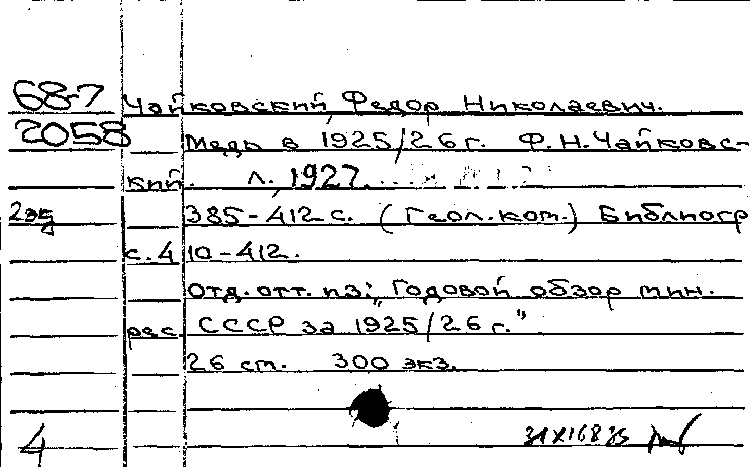 68-7 Чайковский, Федор Николаевич.
2058 Медь в 1925/26 г. Ф.Н.Чайковс-
кий. Л., 1927.
2экз 385-412 с. (Геол.ком.) Библиогр
с. 410-412.
Отд. отт. из: „Годовой обзор мин.
рес. СССР за 1925/26 г."
26 см. 300 экз.
4